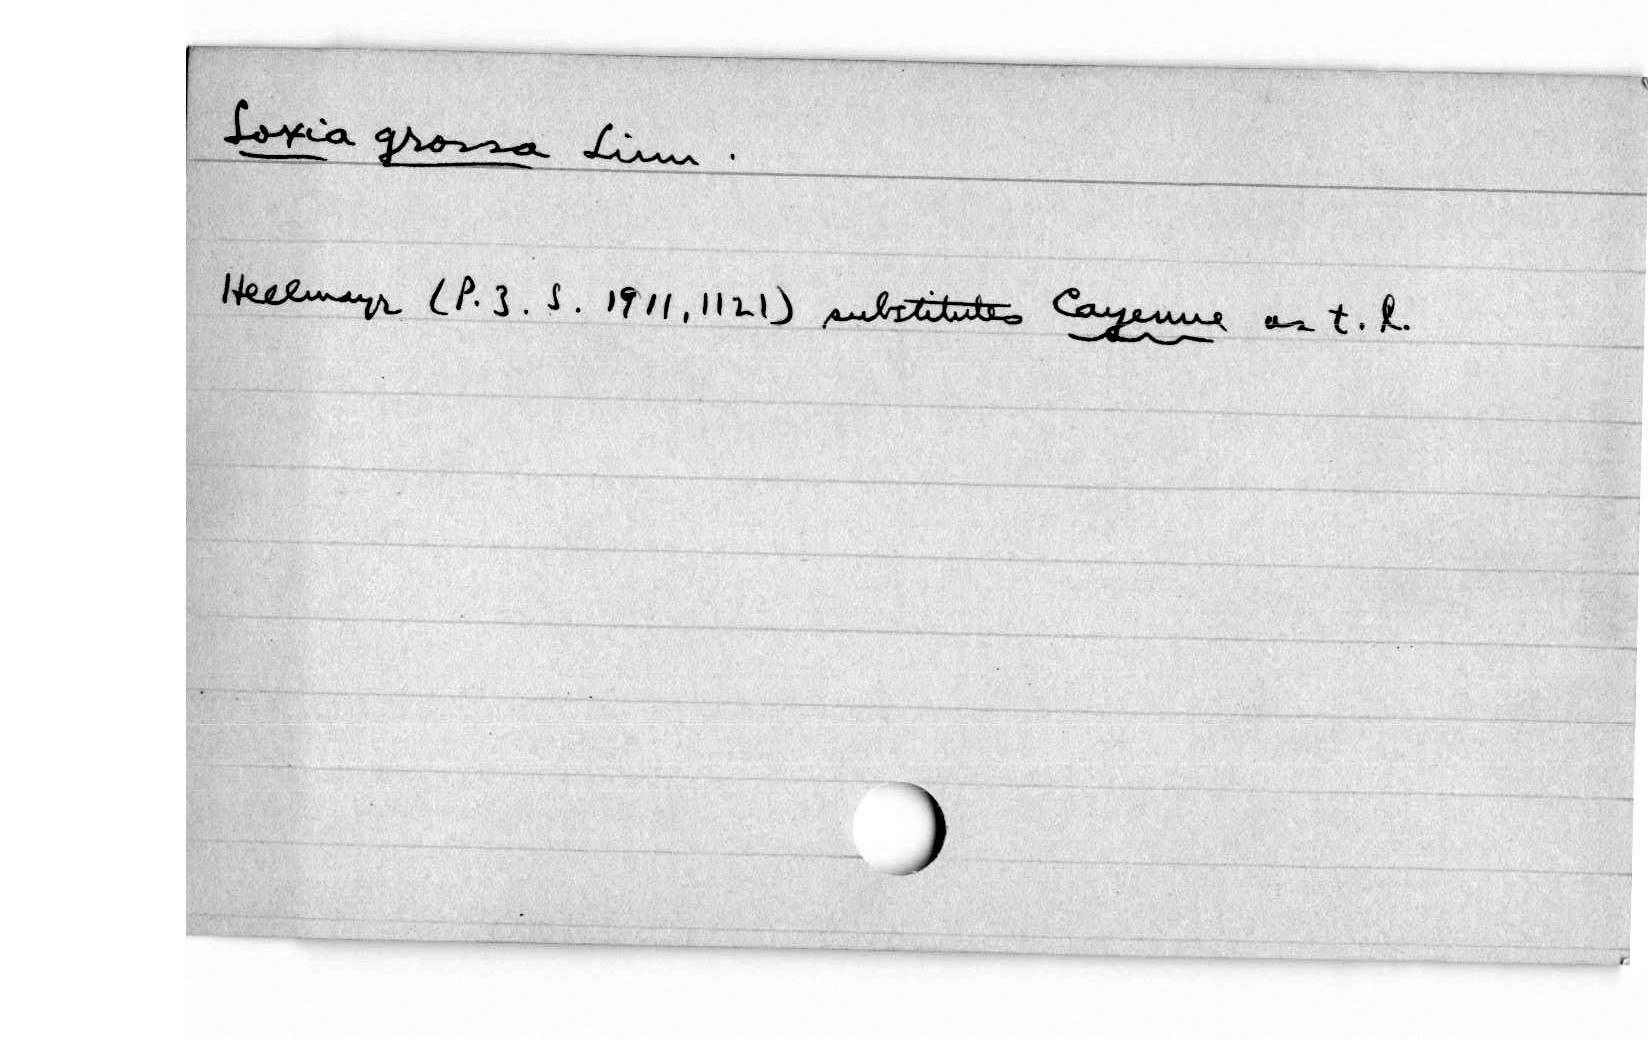 Loxia grossa Linn.
Hellmayr (P.Z.S. 1911, 1121) substitutes Cayenne as t.l.